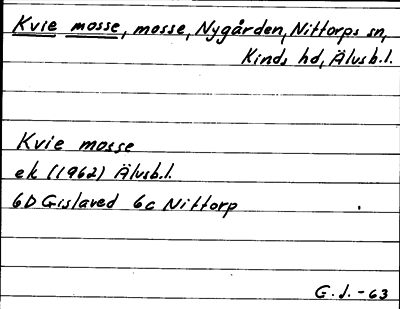 Kvie mosse, mosse, Nygården, Nittorps sn,
Kinds hd, Älvsb.l.
Kvie mosse
ek (1962) Älvsb.l.
6D Gislaved 6c Nittorp
G.J.-63